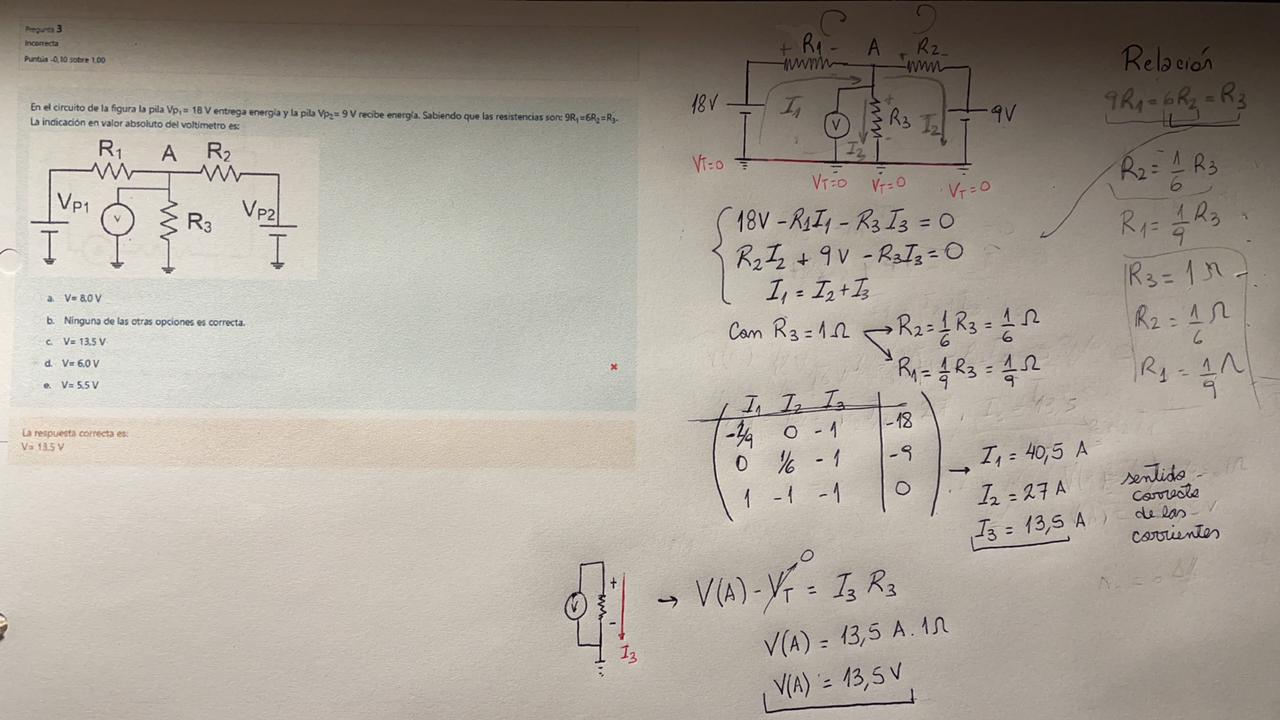 Pregunta 3
Incorrecta
Puntúa -0,10 sobre 1,00
En el circuito de la figura la pila Vp₁= 18 V entrega energía y la pila Vp₂= 9 V recibe energía. Sabiendo que las resistencias son: 9R₁=6R₂=R₃.
La indicación en valor absoluto del voltímetro es:
R₁ A R₂
V_P1 V R₃ V_P2
a. V= 8,0 V
b. Ninguna de las otras opciones es correcta.
c. V= 13,5 V
d. V= 6,0 V
e. V= 5,5 V
La respuesta correcta es:
V= 13,5 V
+ R₁ - A + R₂ -
18V I₁ V I₃ + R₃ - I₂ 9V
V_T=0 V_T=0 V_T=0 V_T=0
18V - R₁I₁ - R₃I₃ = 0
R₂I₂ + 9V - R₃I₃ = 0
I₁ = I₂ + I₃
Con R₃ = 1Ω → R₂ = 1/6 R₃ = 1/6 Ω
R₁ = 1/9 R₃ = 1/9 Ω
I₁ I₂ I₃
-1/9 0 -1 -18
0 1/6 -1 -9
1 -1 -1 0
→ I₁ = 40,5 A
I₂ = 27 A
I₃ = 13,5 A
sentido
correcto
de las
corrientes
V + - I₃
→ V(A) - V_T = I₃ R₃
0
V(A) = 13,5 A . 1Ω
V(A) = 13,5 V
Relación
9R₁ = 6R₂ = R₃
R₂ = 1/6 R₃
R₁ = 1/9 R₃
R₃ = 1Ω
R₂ = 1/6 Ω
R₁ = 1/9 Ω